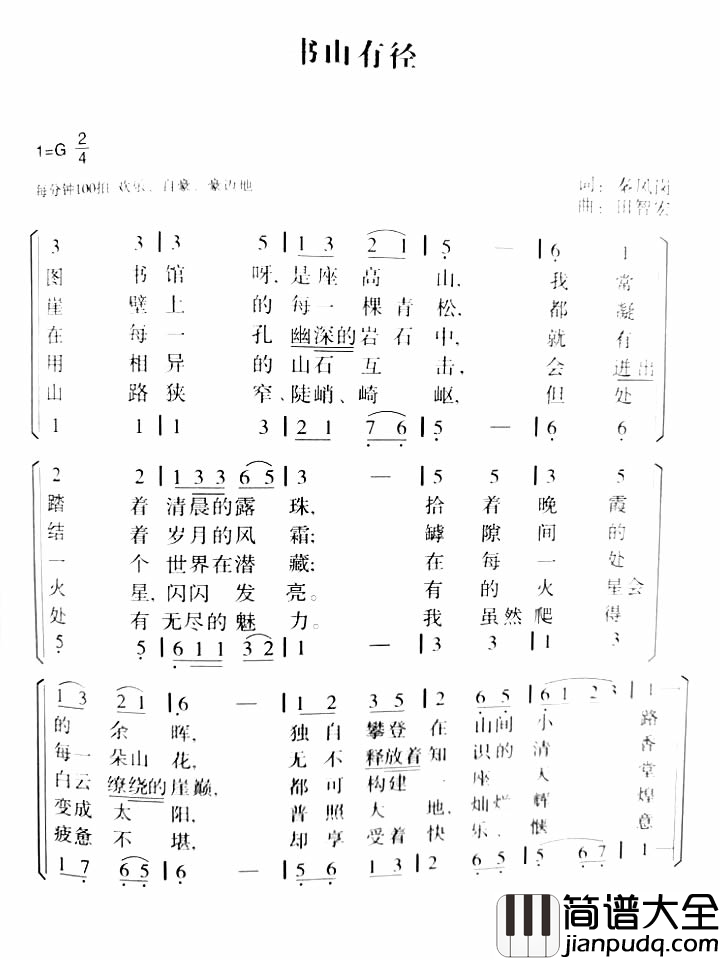 书山有径
1=G 2/4
每分钟100拍 欢乐、自豪、豪迈地
词：秦风岗
曲：田智宏
3 3 | 3 5 | 1 3 2 1 | 5 — | 6 1
图书馆呀,是座高山,我常
崖壁上的每一棵青松,都凝
在每一孔幽深的岩石中,就有
用相异的山石互击,会迸出
山路狭窄、陡峭、崎岖,但处
1 1 | 1 3 | 2 1 7 6 | 5 — | 6 6
2 2 | 1 3 3 6 5 | 3 — | 5 5 | 3 5
踏着清晨的露珠,拾着晚霞
结着岁月的风霜;罅隙间的
一个世界在潜藏;在每一处
火星,闪闪发亮。有的火星会
处有无尽的魅力。我虽然爬得
5 5 | 6 1 1 3 2 | 1 — | 3 3 | 1 3
1 3 2 1 | 6 — | 1 2 3 5 | 2 6 5 | 6 1 2 3 | 1 —
的余晖,独自攀登在山间小路
每一朵山花,无不释放着知识的清香
白云缭绕的崖巅,都可构建一座天堂
变成太阳,普照大地,灿烂辉煌
疲惫不堪,却享受着快乐、惬意
1 7 6 5 | 6 — | 6 5 1 3 | 6 5 6 | 5 5 6 7 | 1
简谱大全
jianpudq.com